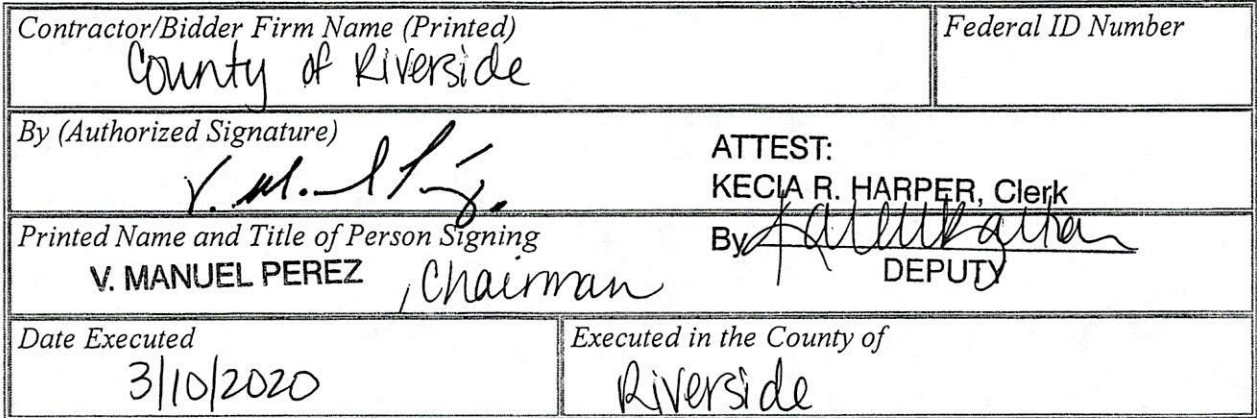 Contractor/Bidder Firm Name (Printed)
County of Riverside
Federal ID Number
By (Authorized Signature)
ATTEST:
KECIA R. HARPER, Clerk
By
DEPUTY
Printed Name and Title of Person Signing
V. MANUEL PEREZ , Chairman
Date Executed
3/10/2020
Executed in the County of
Riverside